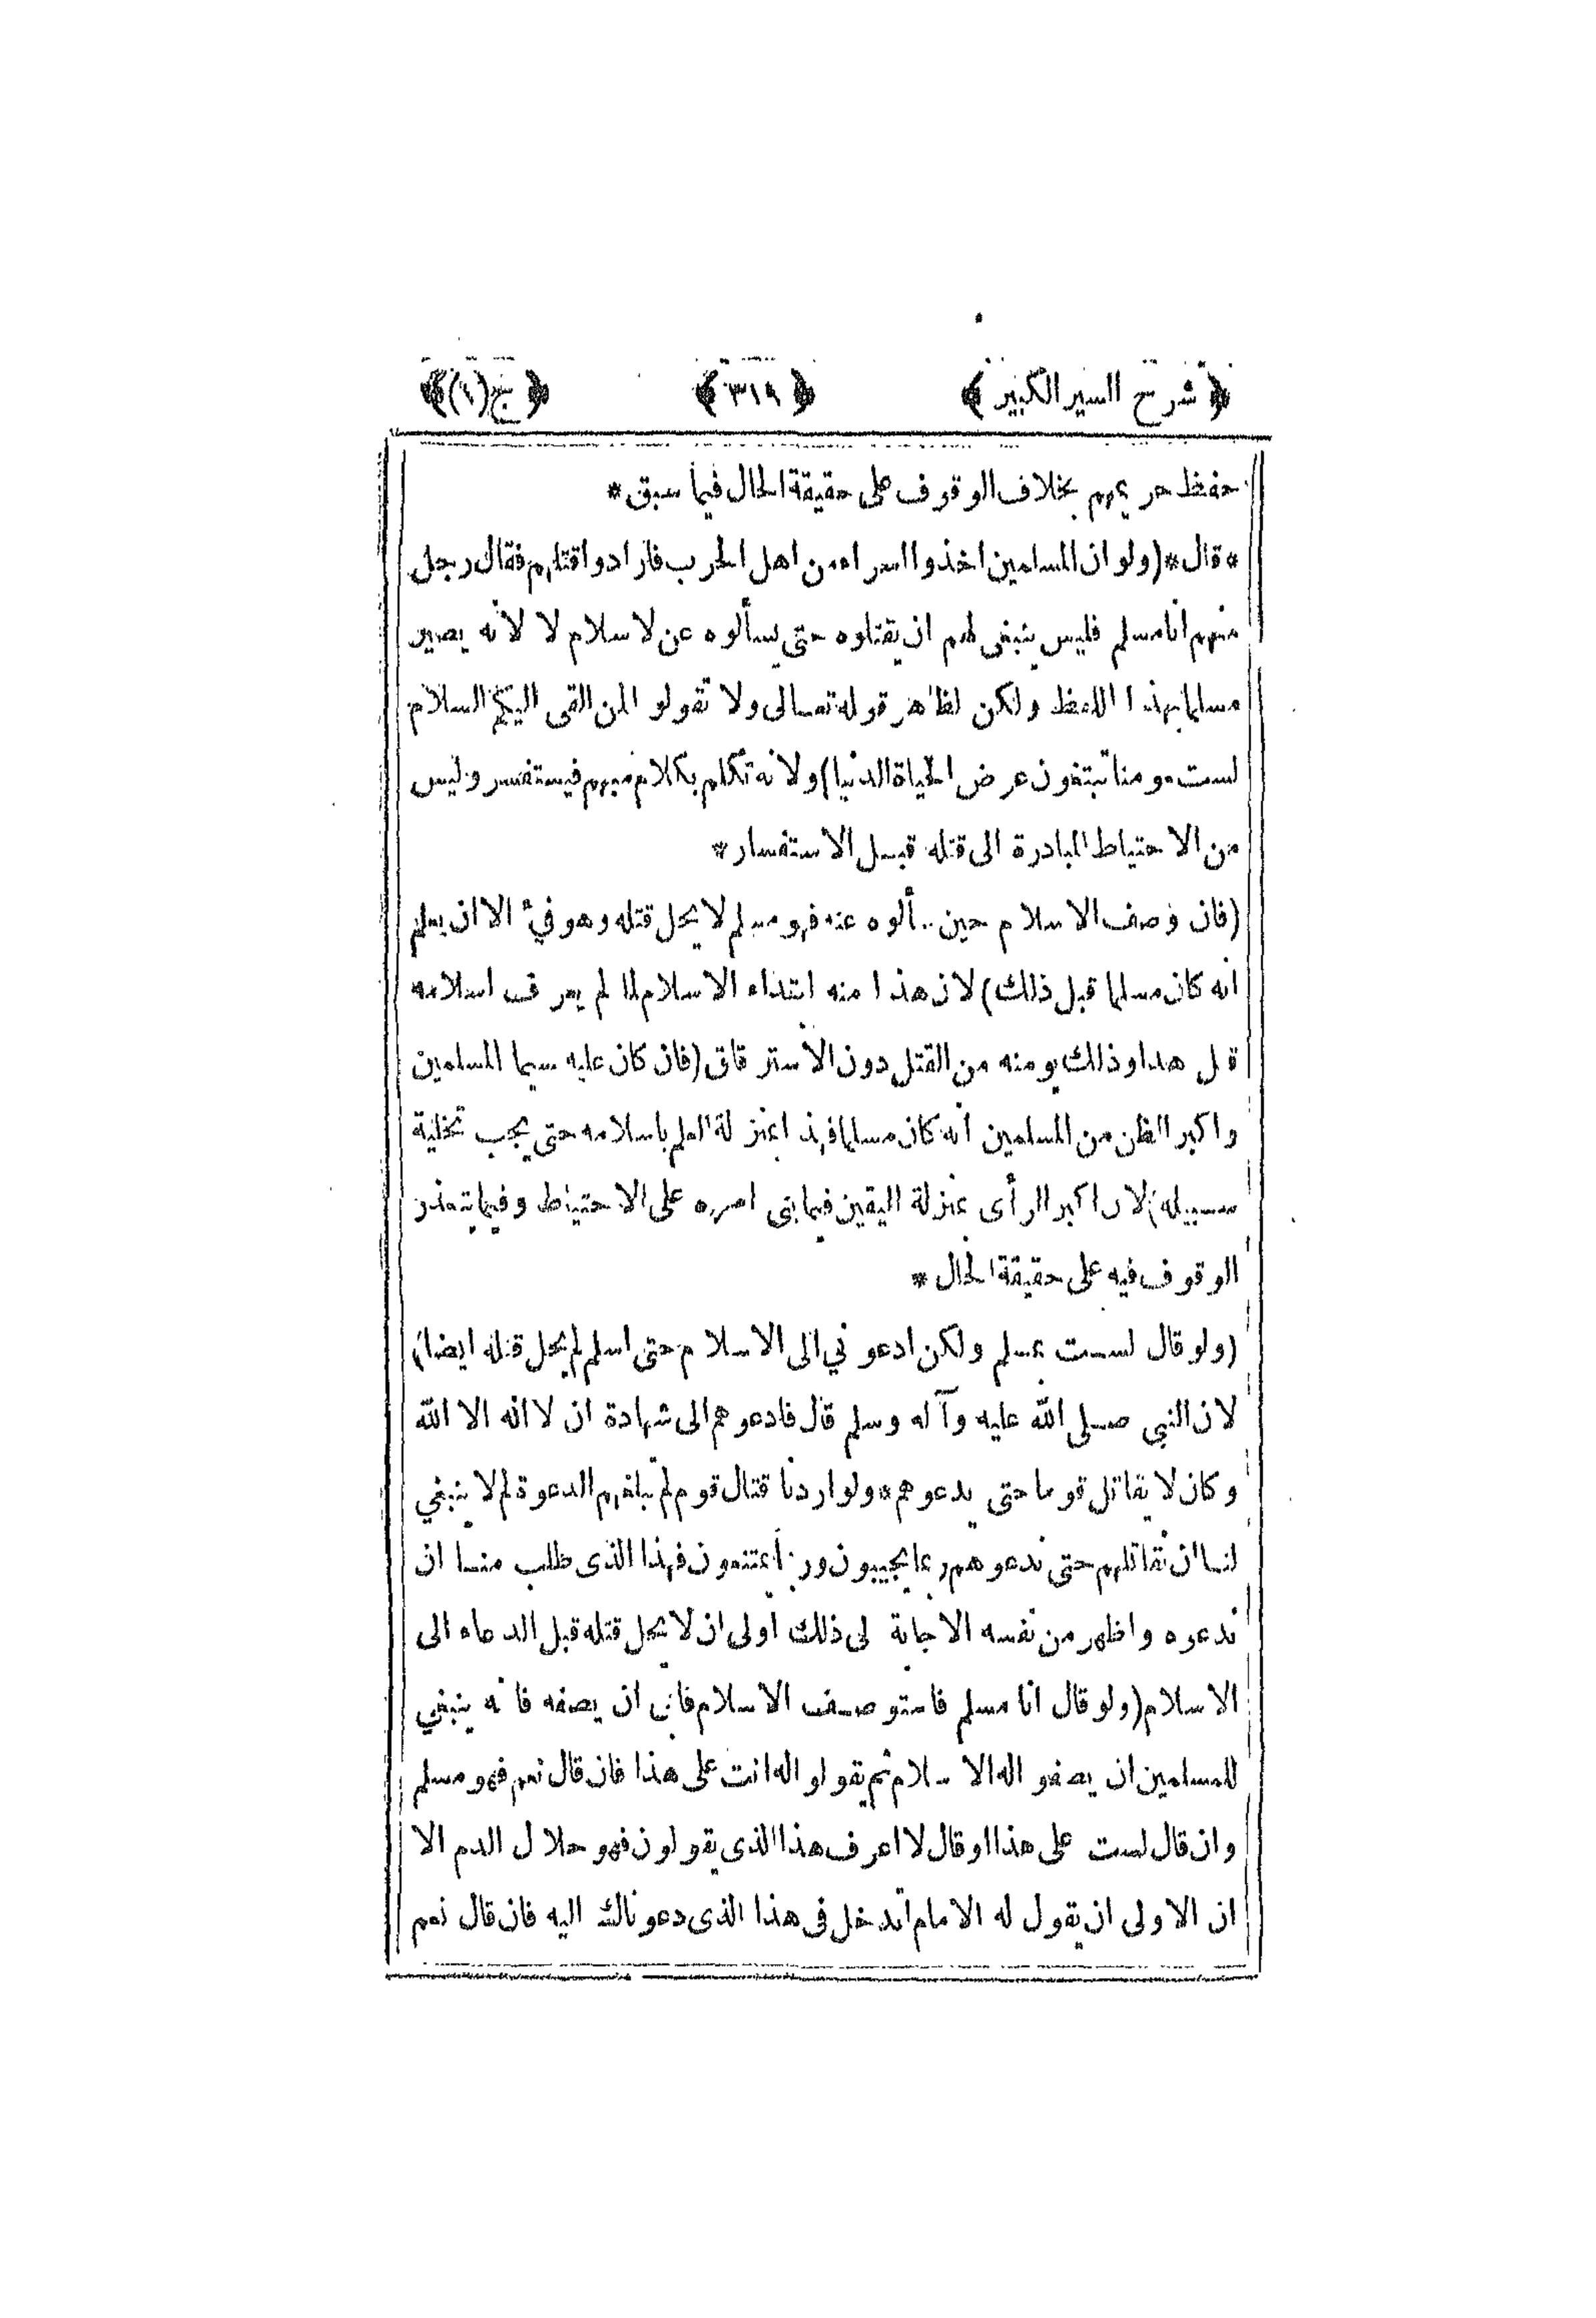 ﴿شرح السير الكبير﴾ ﴿٣١٩﴾ ﴿ج(١)﴾
حفظ حريمهم بخلاف الوقوف على حقيقة الحال فيما سبق*
*قال*(ولو ان المسلمين اخذوا اسراء من اهل الحرب فارادوا قتلهم فقال رجل
منهم انا مسلم فليس ينبغى لهم ان يقتلوه حتى يسألوه عن لاسلام لا لانه يصير
مسلما بهذا اللفظ ولكن لظاهر قوله تعالى ولا تقولو المن القى اليكم السلام
لست مومنا تبتغون عرض الحياة الدنيا)ولانه تكلم بكلام مبهم فيستفسر وليس
من الاحتياط المبادرة الى قتله قبل الاستفسار*
(فان وصف الاسلام حين سألوه عنه فهو مسلم لا يحل قتله وهو فيء الا ان يعلم
انه كان مسلما قبل ذلك)لان هذا منه ابتداء الاسلام لما لم يعرف اسلامه
قبل هذا وذلك يومنه من القتل دون الاسترقاق(فان كان عليه سيما المسلمين
واكبر الظن من المسلمين انه كان مسلما فهذا بمنزلة العلم باسلامه حتى يجب تخلية
سبيله)لان اكبر الرأى بمنزلة اليقين فيما بنى امره على الاحتياط وفيما يتعذر
الوقوف فيه على حقيقة الحال*
(ولو قال لست بمسلم ولكن ادعوني الى الاسلام حتى اسلم لم يحل قتله ايضا)
لان النبي صلى الله عليه وآله وسلم قال فادعوهم الى شهادة ان لا اله الا الله
وكان لا يقاتل قوما حتى يدعوهم*ولو اردنا قتال قوم لم تبلغهم الدعوة لم لا ينبغي
لنا ان نقاتلهم حتى ندعوهم ربما يجيبون وربما يمتنعون فهذا الذى طلب منا ان
ندعوه واظهر من نفسه الاجابة الى ذلك اولى ان لا يحل قتله قبل الدعاء الى
الاسلام(ولو قال انا مسلم فاستوصف الاسلام فابى ان يصفه فانه ينبغي
للمسلمين ان يصفو اله الاسلام ثم يقولو اله انت على هذا فان قال نعم فهو مسلم
وان قال لست على هذا او قال لا اعرف هذا الذى يقولون فهو حلال الدم الا
ان الاولى ان يقول له الامام اتدخل فى هذا الذى دعوناك اليه فان قال نعم